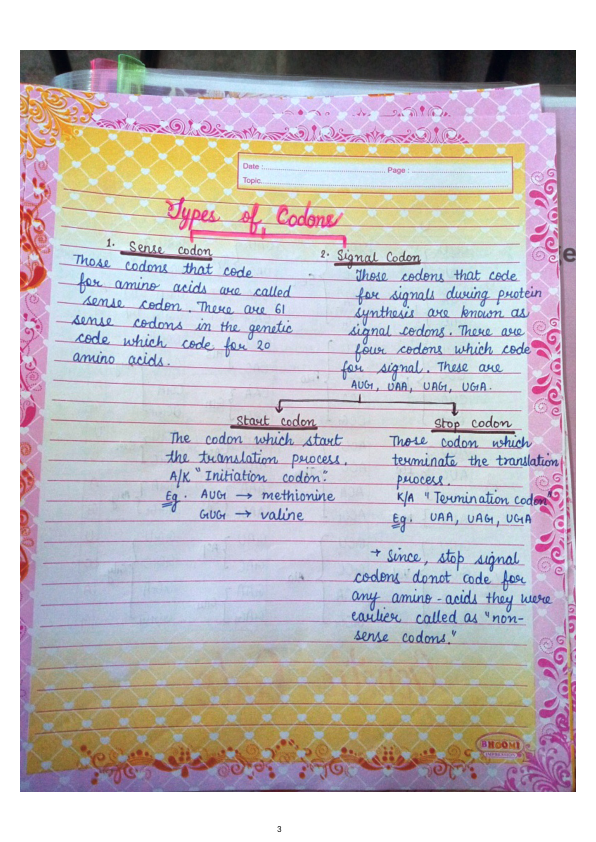 Date : Page :
Topic
Types of Codons
1. Sense codon
Those codons that code
for amino acids are called
sense codon. There are 61
sense codons in the genetic
code which code for 20
amino acids.
2. Signal Codon
Those codons that code
for signals during protein
synthesis are known as
signal codons. There are
four codons which code
for signal. These are
AUG, UAA, UAG, UGA.
Start codon
The codon which start
the translation process.
A/K "Initiation codon".
Eg. AUG → methionine
GUG → valine
Stop codon
Those codon which
terminate the translation
process.
K/A "Termination codon"
Eg. UAA, UAG, UGA
→ Since, stop signal
codons donot code for
any amino-acids they were
earlier called as "non-
sense codons."
BHOOMI
3